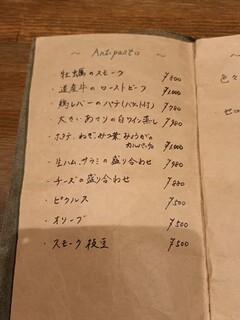 ~ Antipasto ~
牡蠣のスモーク ¥800
・道産牛のローストビーフ ¥1000
・鶏レバーのパテ(バゲット付) ¥780
・大きいあさりの白ワイン蒸し ¥900
・ホタテ、ねぎ、みつ葉、みょうがの
カルパッチョ ¥1000
・生ハム、サラミの盛り合わせ ¥980
・チーズの盛り合わせ ¥880
・ピクルス ¥500
・オリーブ ¥500
・スモーク枝豆 ¥500
色々
・ゼロ